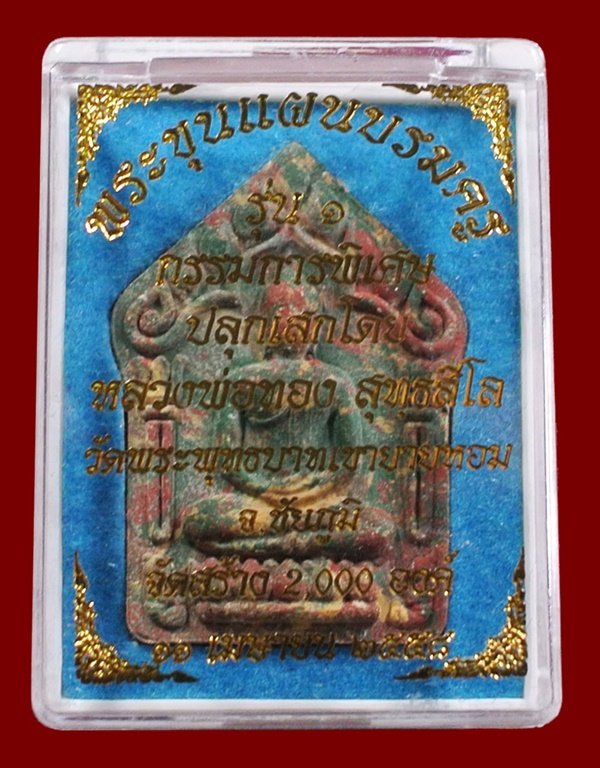 พระขุนแผนบรมครู
รุ่น ๑
กรรมการพิเศษ
ปลุกเสกโดย
หลวงพ่อทอง สุทฺธสีโล
วัดพระพุทธบาทเขายายหอม
จ.ชัยภูมิ
จัดสร้าง 2,000 องค์
๑๑ เมษายน ๒๕๕๔